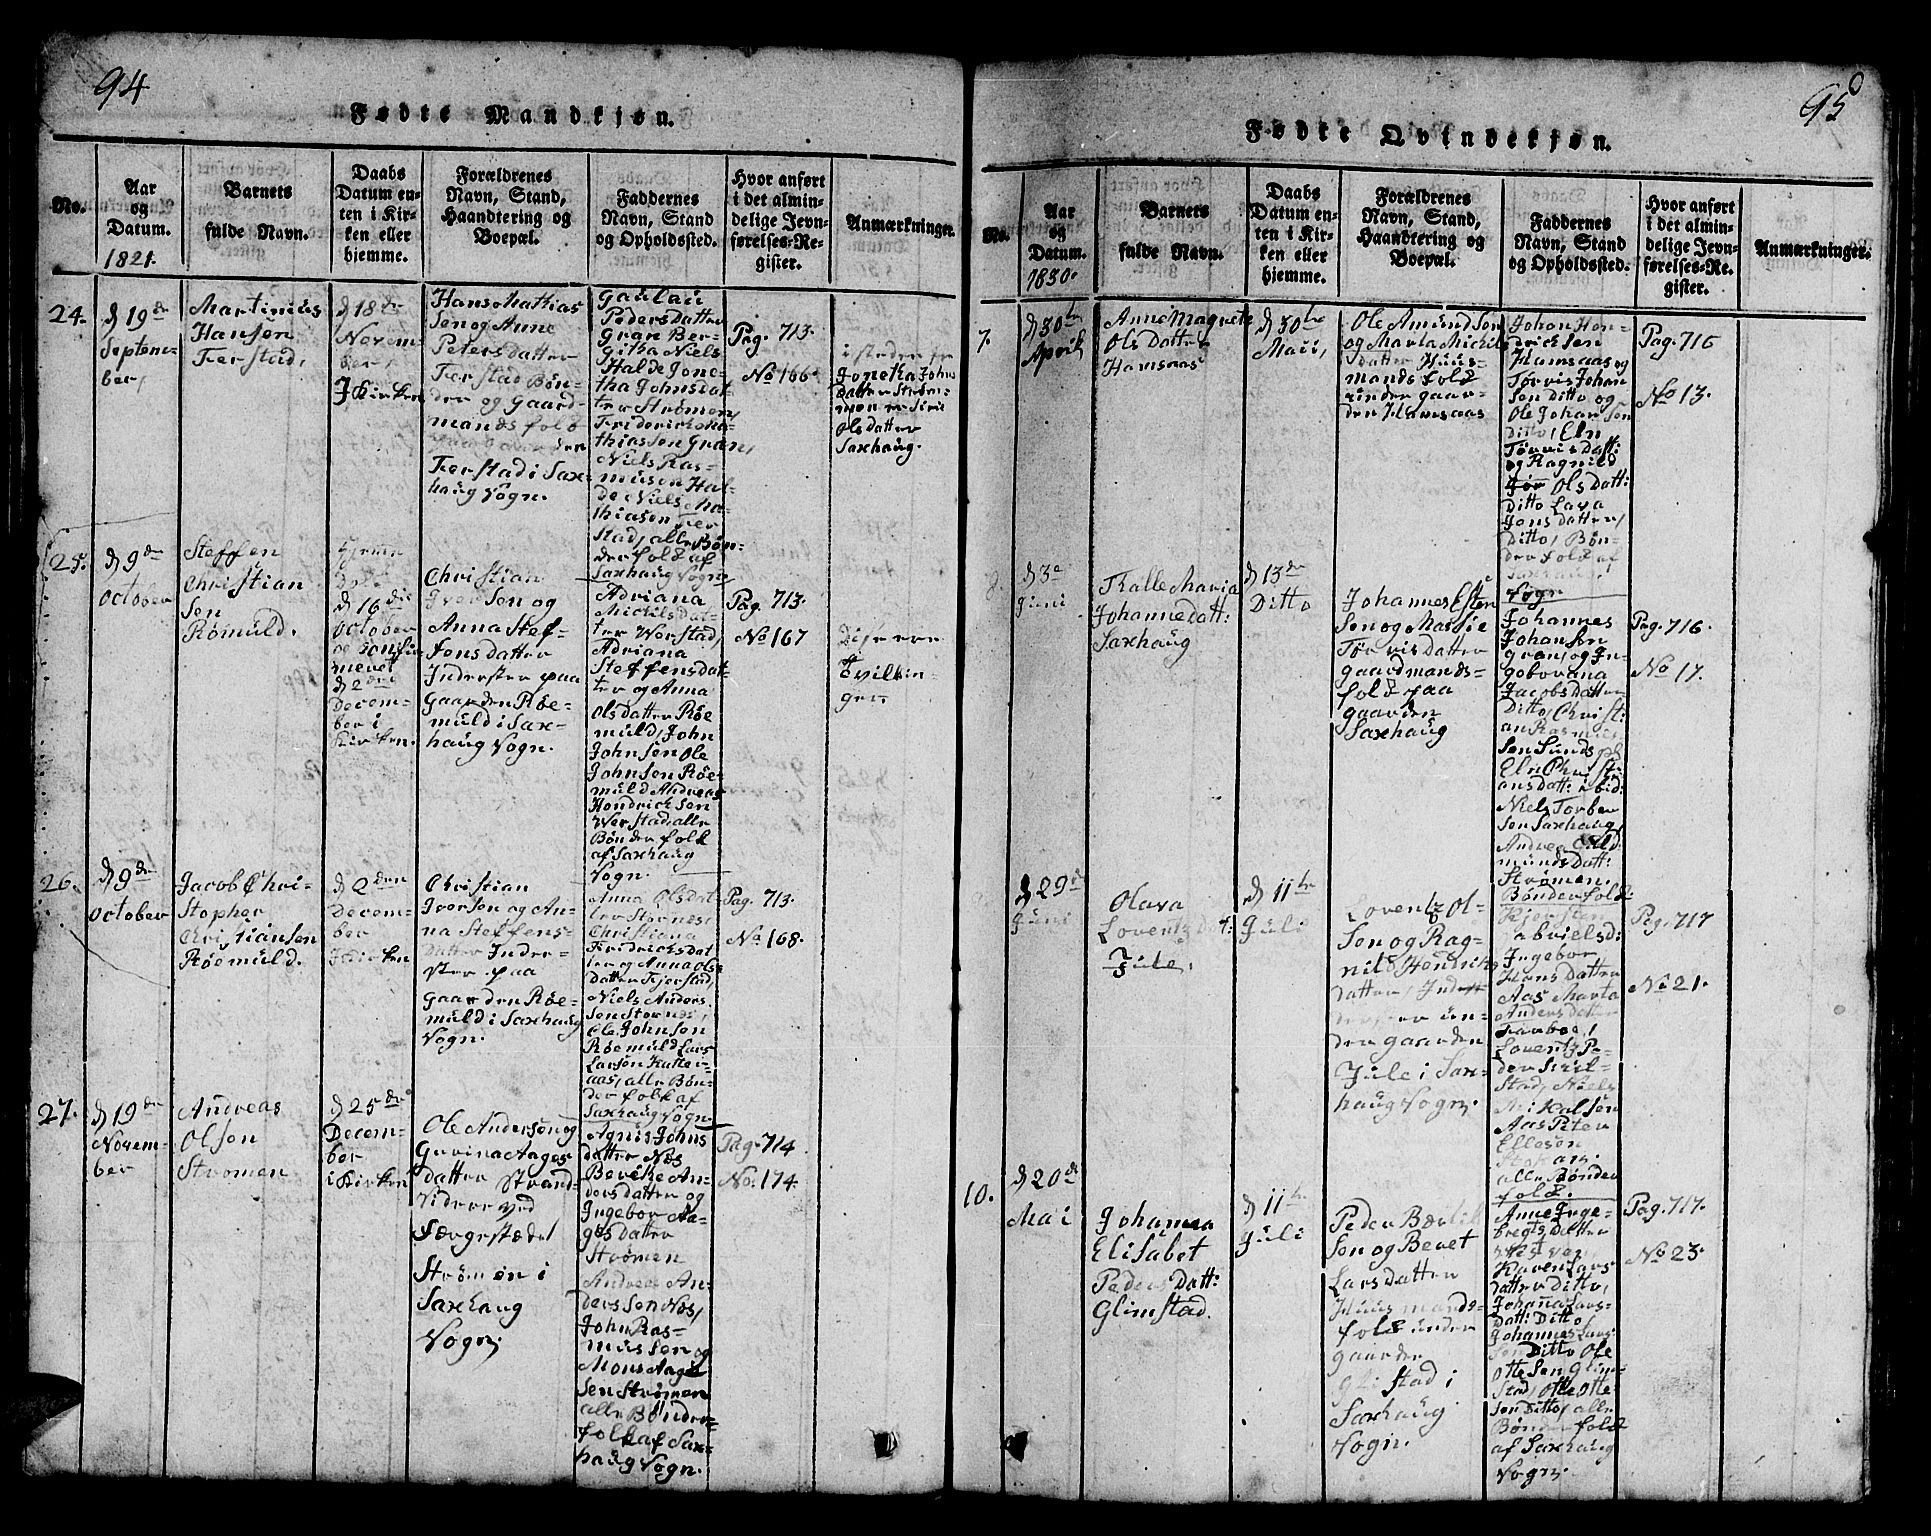 94
Fødte Mandkjøn.
No.
Aar
og
Datum.
1821.
Barnets
fulde Navn.
Daabs
Datum en-
ten i Kir-
ken eller
hjemme.
Forældrenes
Navn, Stand,
Haandtering og
Boepæl.
Faddernes
Navn, Stand
og Opholdssted.
Hvor anført
i det almin-
delige Jevn-
førelses-Re-
gister.
Anmærkninger.
24.
d 19de
Septem-
ber,
Martinius
Hansen
Ferstad,
d 18de
Novem-
ber,
J Kirken
Hans Mathias
Sen og Anne
Petersdatter
Ferstad Bøn-
der og Gaard-
mandsfolk
Ferstad i Sax-
haug Sogn.
Gaulaū
Pedersdatter
Gran Ber-
githa Niels
Halde Jone-
tha Johnsdat-
ter Strømen,
Friderich Ma-
thiassen Gran,
Niels Ras-
mussen Hal-
de Niels Ma-
thiasen Fer
Stad, alle Bøn-
derfolk af
Saxhaug Sogn
Pag. 713.
No 166.
i steden for
Joneka Johns
Datter Strøm-
men er Siri
Olsdatter
Saxhaug.
25.
d 9de
October
Steffen
Christian
Sen
Römuld.
Hjemme
Døbt
d 16de
October
og Confir
meret
d 2den
Decem-
ber i
Kirken.
Christian
Iversen og
Anna Stef-
fensdatter
Inderster paa
Gaarden Röe-
muld i Sax-
haug Sogn.
Adriana
Michelsdat-
ter Werstad,
Adriana
Steffensdat-
ter og Anna
Olsdatter Röe
muld, John
Johnsen Ole
Johnsen Röe-
muld Andreas
Hendrichsen
Werstad, alle
Bønderfolk
af Saxhaug
Sogn.
Pag. 713.
No 167
Disse ere
Tvillin-
ger
26.
d 9de
October
Jacob Chri-
Stopher
Christiansen
Röemuld.
d 2den
Decem-
ber
J Kirken
Christian
Iversen og An-
na Steffens-
datter Inder-
ster paa
Gaarden Röe-
muld i Saxhaug
Sogn.
Anna Olsdat-
ter Stornes
Christiana
Fridrichsdat
ter og Anna Ols-
datter Fejerstad,
Niels Anders
Sen Stornes,
Ole Johnsen
Röemuld Lars
Larsön
aas, alle Bøn-
derfolk af
Saxhaug Sogn
Pag. 713.
No 168.
27.
d 19de
Novem-
ber
Andreas
Olsen
Strømen
d 25de
Decem-
ber
i Kirken
Ole Andersøn og
Gurina Aages
datter Strand-
Videre ved
Færgestædet
Strømen i
Saxhaug
Sogn,
Agnis Johns
datter Næs
Berithe An-
dersdatter og
Ingebor Aa-
gesdatter
Strømen
Andreas An-
dersSen Næs,
John Ras-
mussen og
Mons Aage
Sen Strømen
alle Bønder-
folk af Sax-
haug Sogn.
Pag. 714
No. 174.
95
Fødte Qvindekjøn.
No.
Aar
og
Datum.
1830.
Barnets
fulde Navn.
Daabs
Datum en-
ten i Kir-
ken eller
hjemme.
Forældrenes
Navn, Stand,
Haandtering og
Boepæl.
Faddernes
Navn, Stand
og Opholdssted.
Hvor anført
i det almin-
delige Jevn-
førelses-Re-
gister.
Anmærkninger.
7.
d 30te
April
Anne Magrete
Ols Datter
Hamsaas
d 30te
Maii,
Ole Amundsen
og Marta Michels
datter Huus-
mandsfolk
under gaar-
den Hamsaas
Johan Hen-
drichsen
Hamsaas og
Tørris Johan
Sen ditto og
Ole Johansen
Ditto, Eln
Tørrisdatt:
og Ragnild
OlsDatt:
Ditto Lava
Jonsdatter,
Ditto, Bøn-
derfolk af
Saxhaug
Sogn
Pag. 716
No 13.
8.
d 3e
Juni
Kalle Maria
Johannedatt:
Saxhaug
d 13de
Ditto
Johannes Esten
Sen og Massie
Tørrisdatter
gaardmands-
folk paa
gaarden
Saxhaug
Johannes
Johansen
gran, og In-
gobor ana
Jacobsdatter
Ditto, Christ:
an Rasmus
Sen Sunds pl
Eln Christi-
ansdatt: ibid:
Niels Torber
Sen Saxhaug
Andrea Guld
mundsdatt:
Strømen.
Bønderfolk
Pag. 716
No 17.
d 29de
Juni
Olava
Lorentz dat:
Jule.
d 11te
Juli
Lorentz Ol-
Sen og Rag-
nild Hendrichs
datter, Inde
derster un-
der gaarden
Jule i Sax-
haug Sogn.
Kjersten
abrielsd:
Ingebor
Hansdatter
Aas Marta
Andersdatter
Farboe,
Lorentz Pe-
der Sen
Stad, Niels
Mikalsen
Aas Peter
Ellesen
alle Bønder
folk.
Pag. 717
No 21.
10.
d 20de
Mai
Johanna
Elisabet
Peders Datt:
Glimstad.
d 11te
Juli
Peder Bærlil
Sen og Beret
Larsdatter
Huusmands-
folk under
gaarden
Gli Stad i
Saxhaug
Sogn.
Anne Inge-
bregtsdatter
Karen Lars
datter Ditto,
Johana Lars-
Datt: Ditto
Johannes Lars
Sen Ditto Ole
Ottesen Glim-
Stad, Otte Otte-
Sen Ditto, alle
Bønderfolk
af Saxhaug
Sogn.
Pag. 717.
No 23.